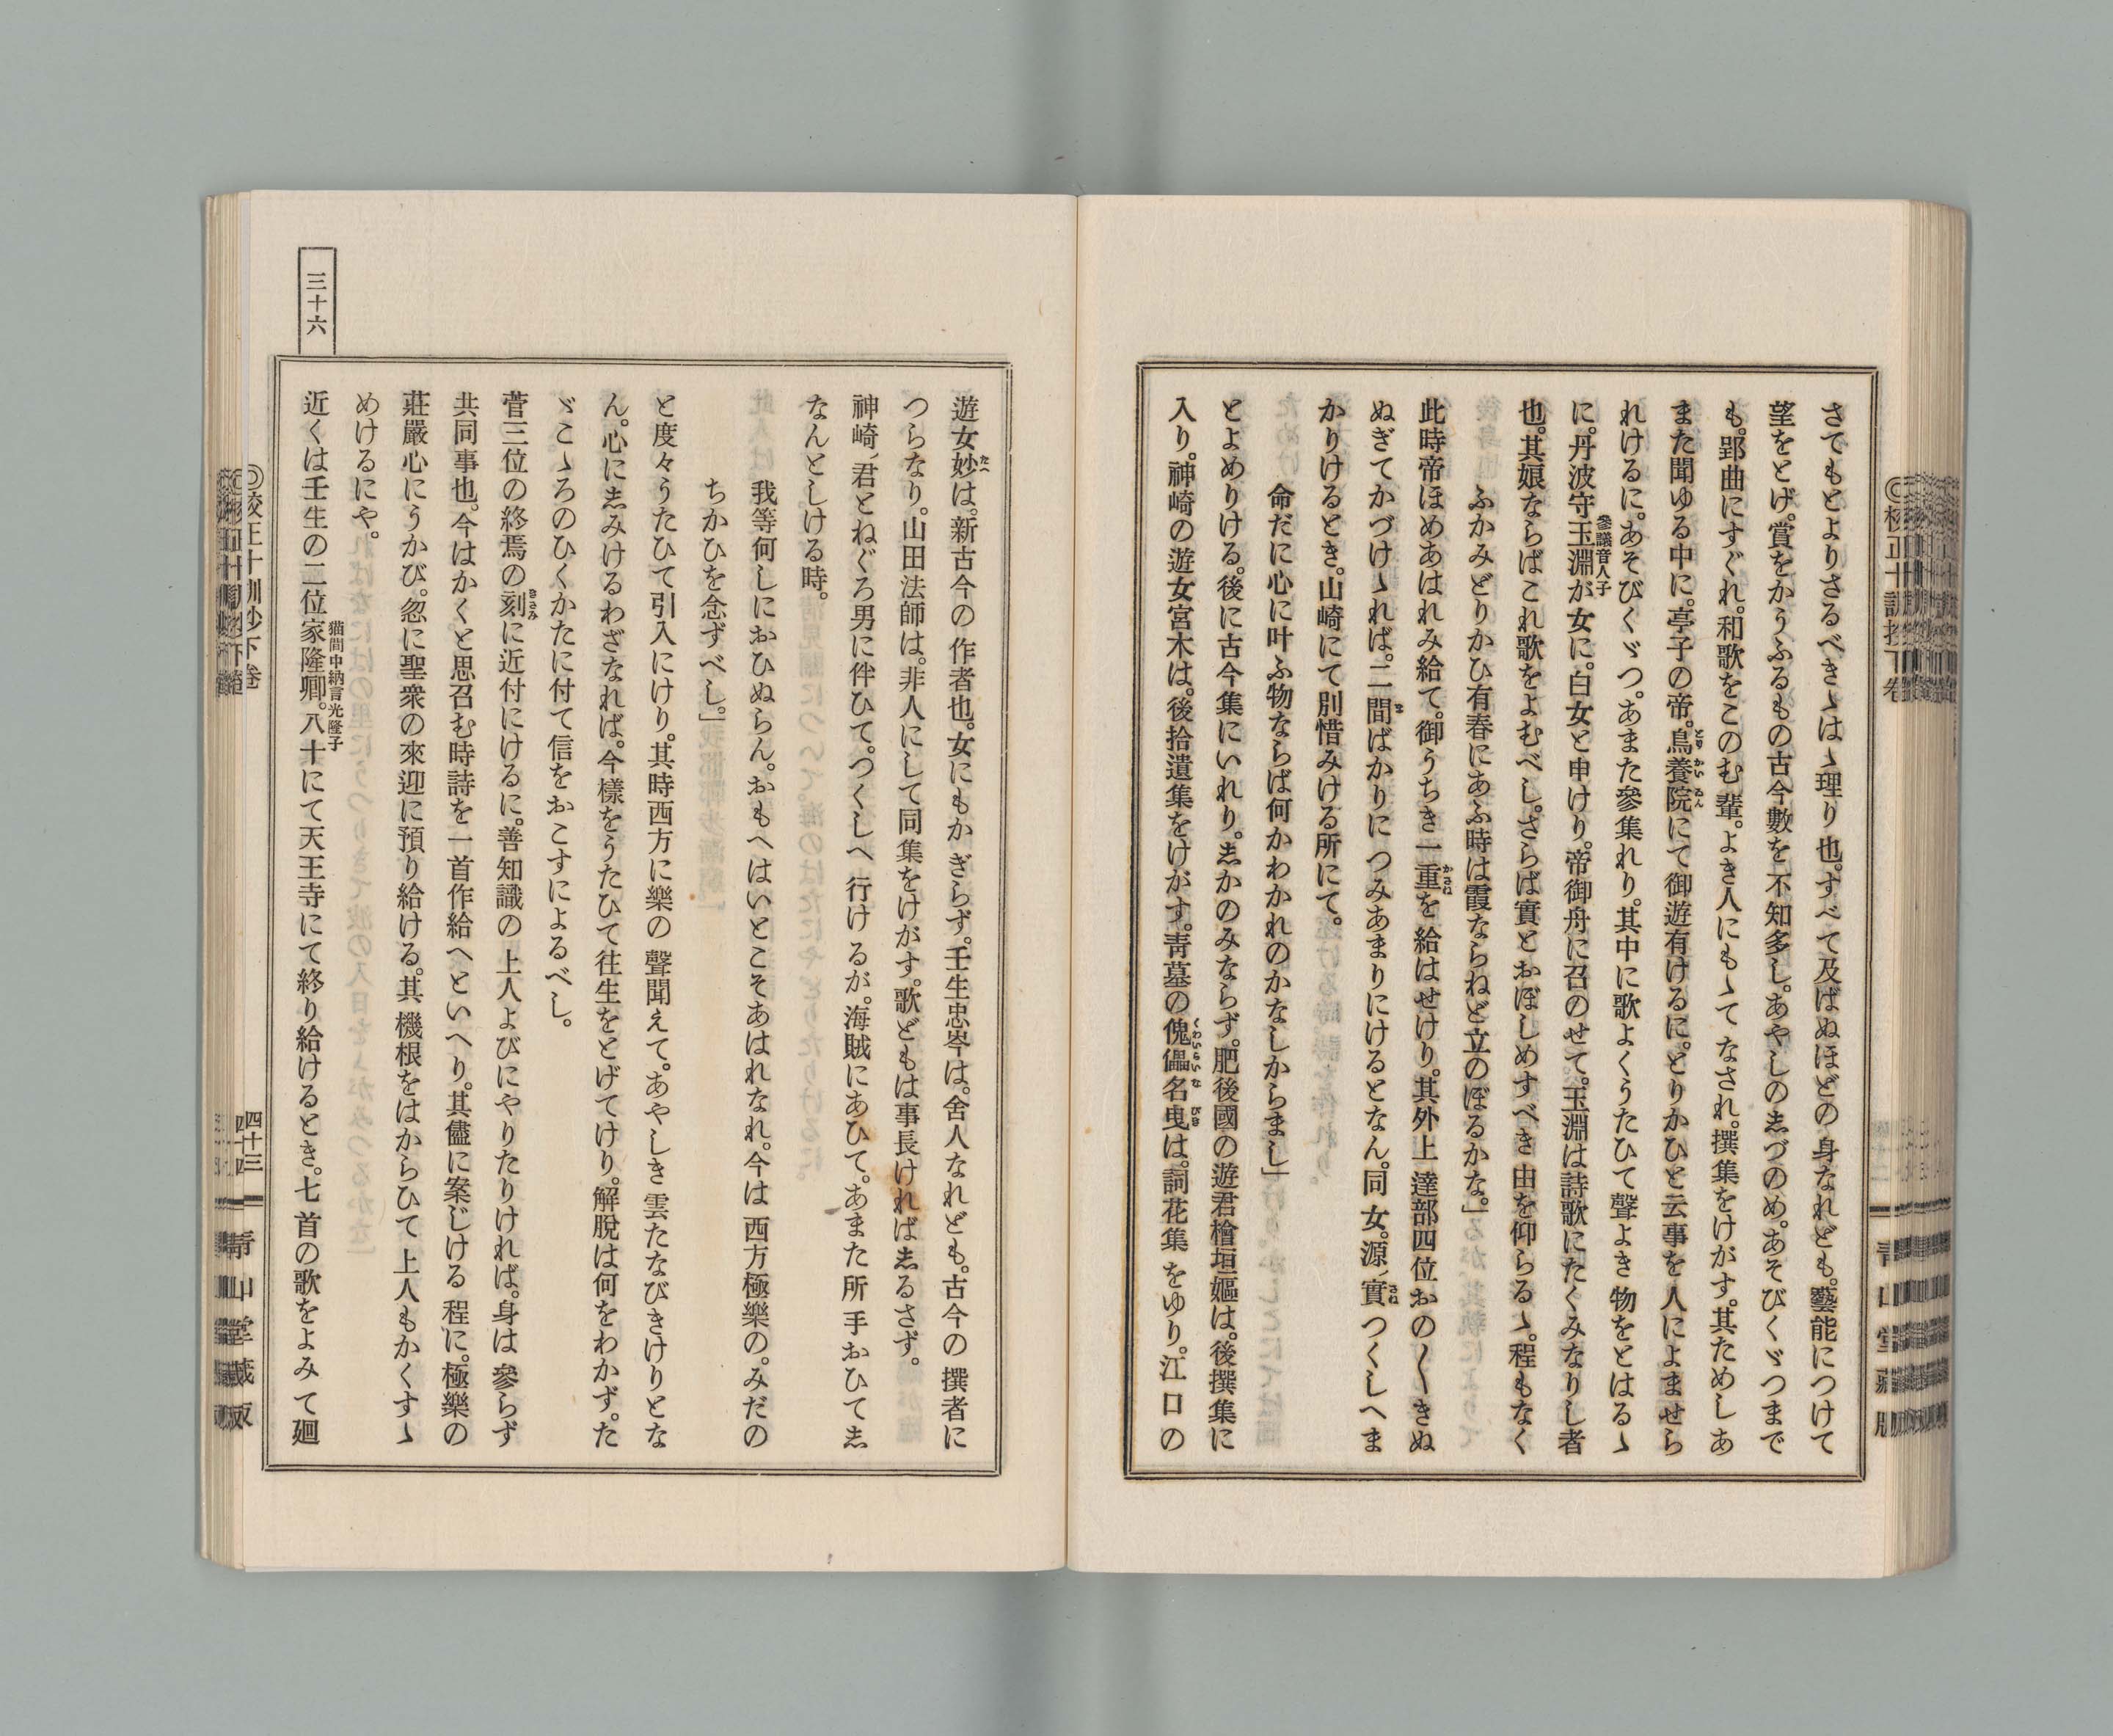 さてもとよりさるべきゝはゝ理り也。すべて及ばぬほどの身なれども。藝能につけて
望をとげ。賞をかうふるもの古今數を不知多し。あやしの志づのめ。あそびくゞつまで
も。郢曲にすぐれ。和歌をこのむ輩。よき人にもゝてなされ。撰集をけがす。其ためしあ
また聞ゆる中に。亭子の帝。鳥養院にて御遊有けるに。とりかひと云事を人によませら
れけるに。あそびくゞつ。あまた參集れり。其中に歌よくうたひて聲よき物をとはるゝ
に。丹波守玉淵が女に。白女と申けり。帝御舟に召のせて。玉淵は詩歌にたくみなりし者
也。其娘ならばこれ歌をよむべし。さらば實とおぼしめすべき由を仰らるゝ。程もなく
ふかみどりかひ有春にあふ時は霞ならねど立のぼるかな。」
此時帝ほめあはれみ給て。御うちき一重を給はせけり。其外上達部四位おの〳〵きぬ
ぬぎてかづけゝれば。二間ばかりにつみあまりにけるとなん。同女。源ノ實つくしへま
かりけるとき。山崎にて別惜みける所にて。
命だに心に叶ふ物ならば何かわかれのかなしからまし」
とよめりける。後に古今集にいれり。志かのみならず。肥後國の遊君檜垣嫗は。後撰集に
入り。神崎の遊女宮木は。後拾遺集をけがす。靑墓の傀儡名曳は。詞花集をゆり。江口の
遊女妙は。新古今の作者也。女にもかぎらず。壬生忠岑は。舍人なれども。古今の撰者に
つらなり。山田法師は。非人にして同集をけがす。歌どもは事長ければ志るさず。
神崎ノ君とねぐろ男に伴ひて。つくしへ行けるが。海賊にあひて。あまた所手おひて志
なんとしける時。
我等何しにおひぬらん。おもへはいとこそあはれなれ。今は西方極樂の。みだの
ちかひを念ずべし。」
と度々うたひて引入にけり。其時西方に樂の聲聞えて。あやしき雲たなびきけりとな
ん。心に志みけるわざなれば。今樣をうたひて往生をとげてけり。解脫は何をわかず。た
ゞこゝろのひくかたに付て信をおこすによるべし。
菅三位の終焉の刻に近付にけるに。善知識の上人よびにやりたりければ。身は參らず
共同事也。今はかくと思召む時詩を一首作給へといへり。其儘に案じける程に。極樂の
莊嚴心にうかび。忽に聖衆の來迎に預り給ける。其機根をはからひて上人もかくすゝ
めけるにや。
近くは壬生の二位家隆卿。八十にて天王寺にて終り給けるとき。七首の歌をよみて廻
參議音人子
とりかいゐん
かさね
ま
さね
くわいらいなびき
たへ
きざみ
猫間中納言光隆子
三十六
◎校正十訓抄下卷
四十三
靑山堂藏版